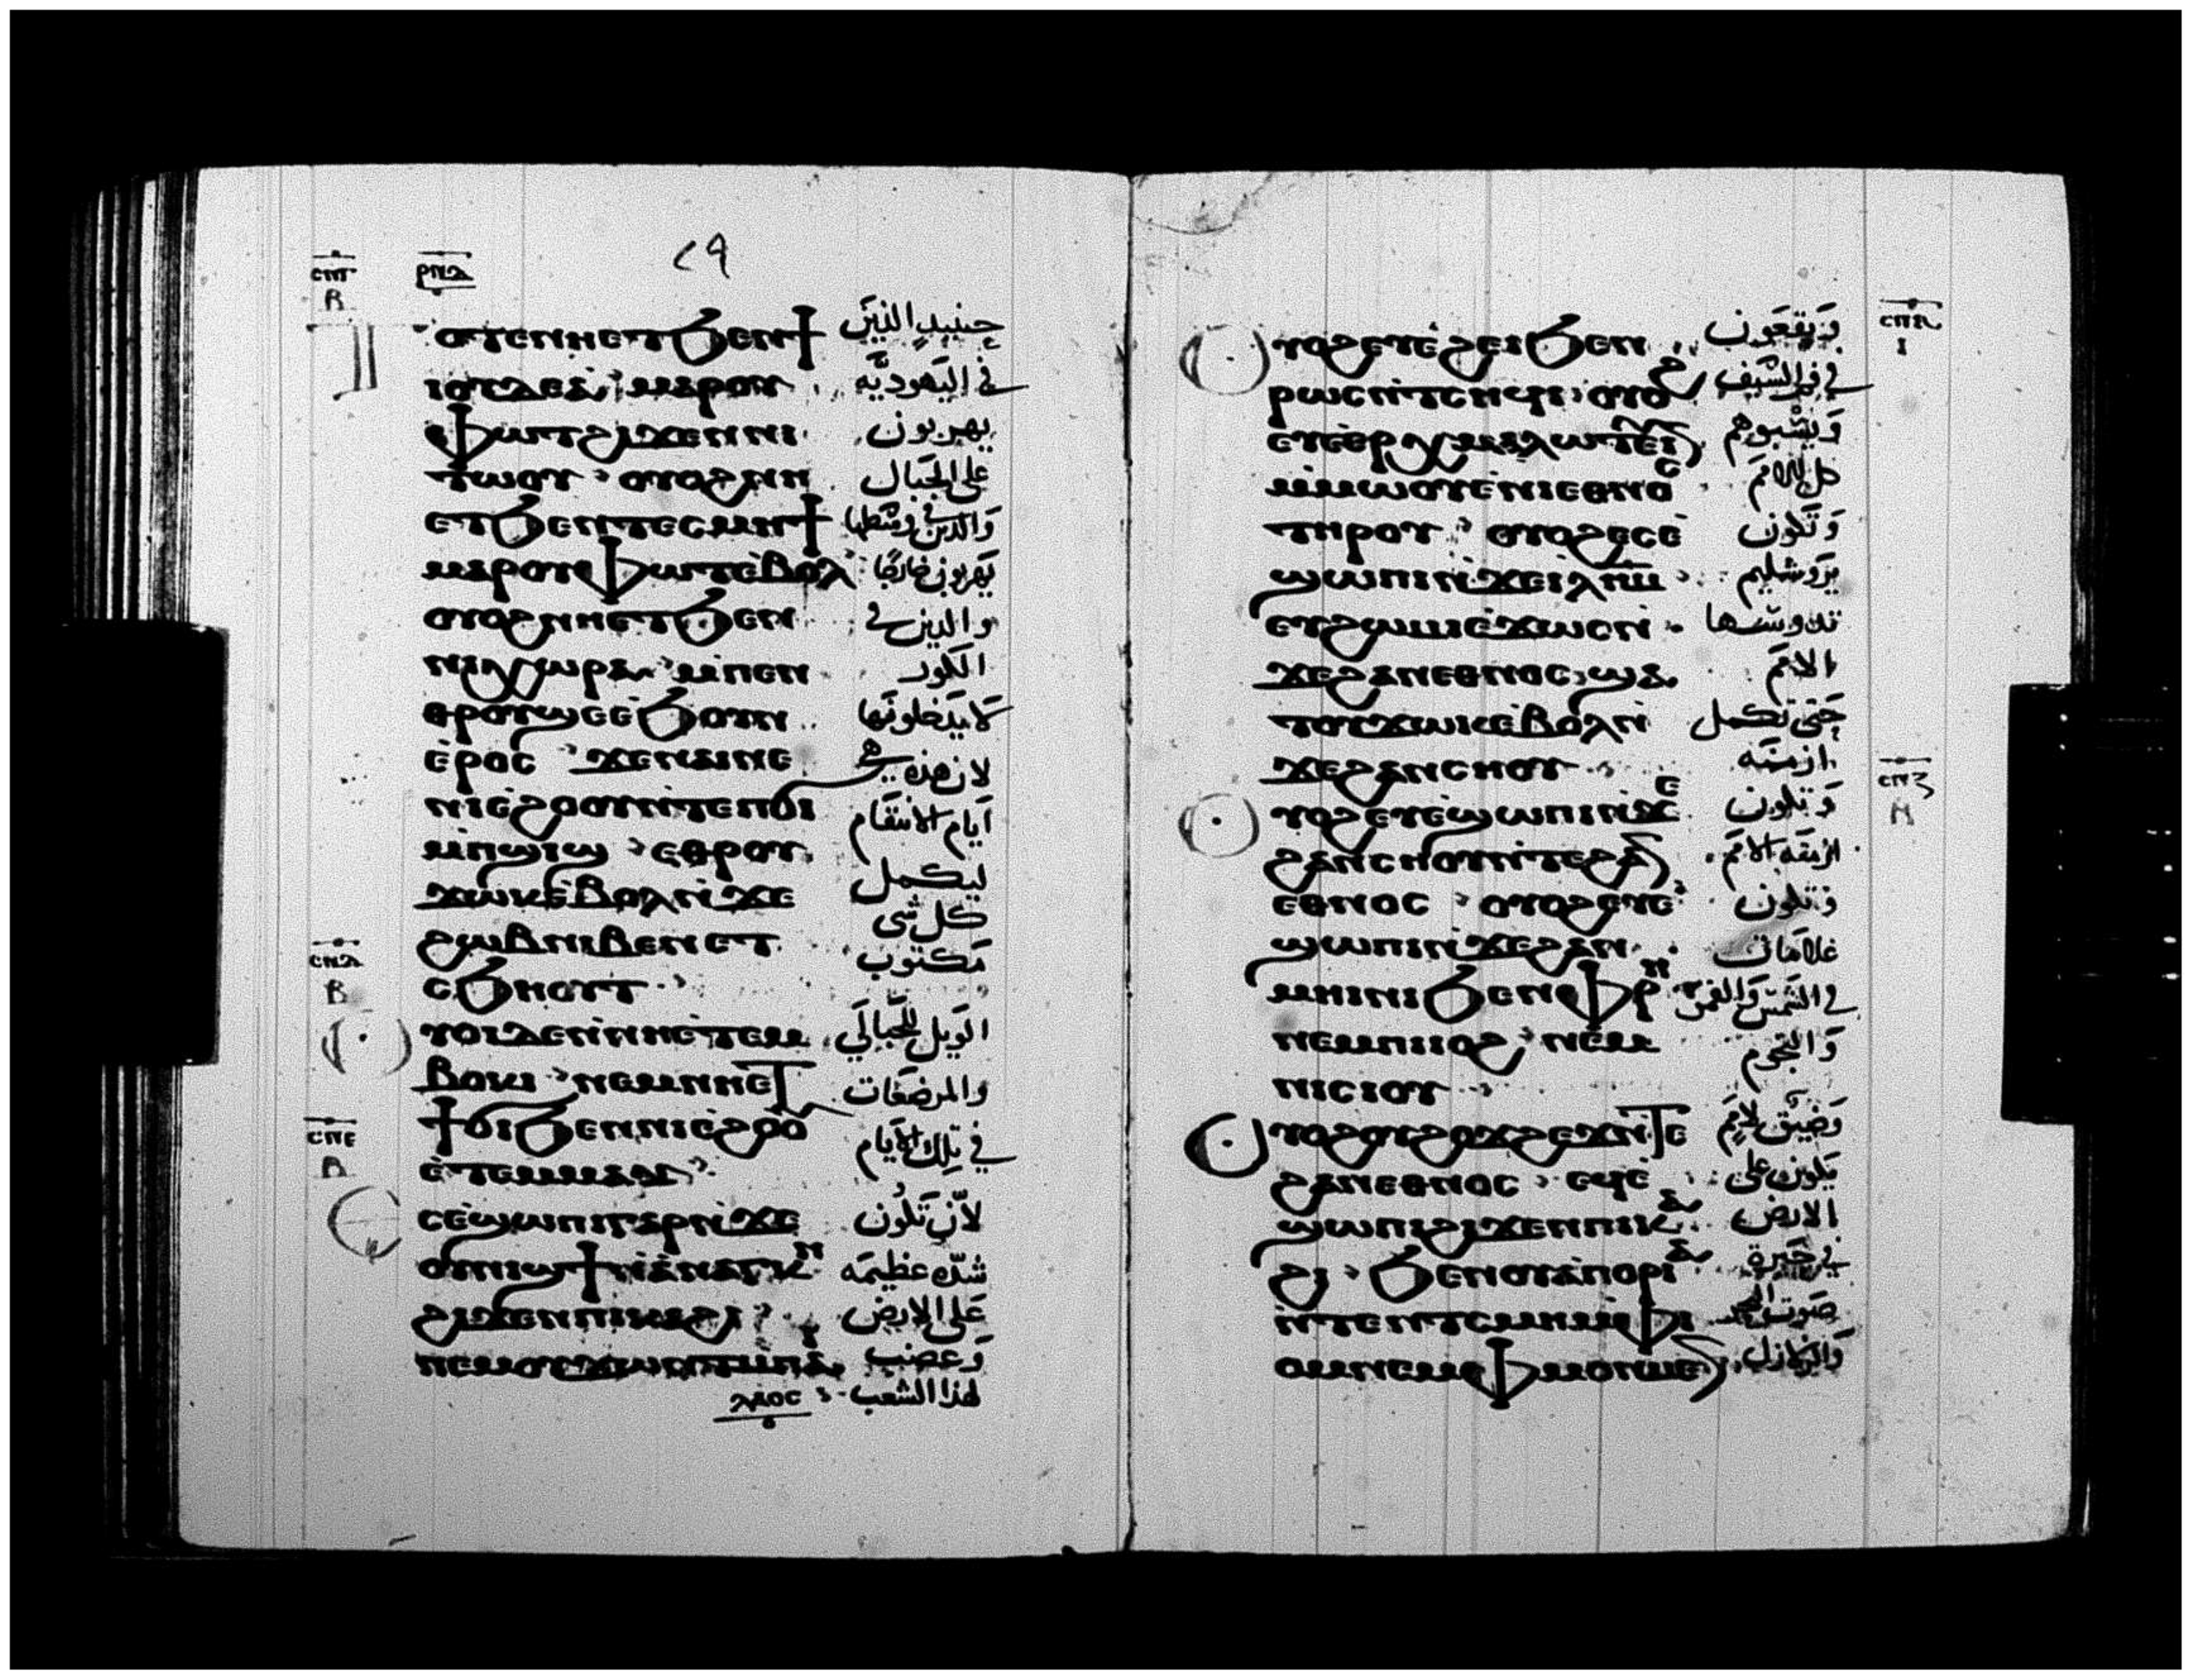 ⲣⲛⲇ
ⲟⲧⲉⲛⲏⲉⲧϧⲉⲛϯ حينيدٍ الذين
ⲓⲟⲩⲇⲉⲁ ⲙⲁⲣⲟⲩ في اليهوديه
ⲫⲱⲧϩⲓϫⲉⲛⲛⲓ يهربون
ⲧⲱⲟⲩ ⲟⲩⲟϩⲛⲏ على الجبال
ⲉⲧϧⲉⲛⲧⲉⲥⲙⲏϯ والذين في وسطها
ⲙⲁⲣⲟⲩⲫⲱⲧⲉⲃⲟⲗ يهربون خارجًا
ⲟⲩⲟϩⲛⲏⲉⲧϧⲉⲛ والذين في
ⲛⲓⲭⲱⲣⲁ ⲙⲡⲉⲛ الكور
ⲑⲣⲟⲩϣⲉⲉϧⲟⲩⲛ لا يدخلونها
ⲉⲣⲟⲥ ϫⲉⲛⲁⲓⲛⲉ لان هذه هي
ⲛⲓⲉϩⲟⲟⲩⲛⲧⲉⲡϭⲓ ايام الانتقام
ⲙⲡϣⲓϣ ⲉⲑⲣⲟⲩ ليكمل
ϫⲱⲕⲉⲃⲟⲗⲛϫⲉ كل شى
ϩⲱⲃⲛⲓⲃⲉⲛⲉⲧ مكتوب
ⲥϧⲏⲟⲩⲧ
ⲩⲟⲓⲇⲉⲛⲛⲏⲉⲧⲉⲙ الويل للحبالي
ⲃⲟⲕⲓ ⲛⲉⲙⲛⲏⲉⲧ والمرضعات
ϯϭⲓϧⲉⲛⲛⲓⲉϩⲟⲟ في تلك الايام
ⲉⲧⲉⲙⲙⲁⲩ
ⲥⲉϣⲱⲡⲓⲅⲁⲣⲛϫⲉ لان تكون
ⲟⲩⲛⲓϣϯⲛⲁⲛⲁⲅⲕⲏ شده عظيمه
ϩⲓϫⲉⲛⲡⲓⲕⲁϩⲓ على الارض
ⲛⲉⲙⲟⲩϫⲱⲛⲧⲙⲡⲁ وغضب
ⲗⲁⲟⲥ لهذا الشعب
ⲩⲟϩⲉⲩⲉϩⲉⲓϧⲉⲛ ويقعون
ⲣⲱⲥⲛⲧⲥⲏϥⲓ ⲟⲩⲟϩ في فم السيف
ⲉⲩⲉⲉⲣⲭⲙⲁⲗⲱⲧⲉⲓⲛ ويسبوهم
ⲙⲙⲱⲟⲩⲉⲛⲓⲉⲑⲛⲟⲥ كل الامم
ⲧⲏⲣⲟⲩ ⲟⲩⲟϩⲉⲥⲉ وتكون
ϣⲱⲡⲓⲛϫⲉⲓⲗⲏⲙ يروشليم
ⲉⲩϩⲱⲙⲓⲉϫⲱⲥⲛ تدوسها
ϫⲉϩⲁⲛⲉⲑⲛⲟⲥ ϣⲁ الامم
ⲧⲟⲩϫⲱⲕⲉⲃⲟⲗⲛ حتى تكمل
ϫⲉϩⲁⲛⲥⲏⲟⲩ ازمنه
ⲩⲟϩⲉⲩⲉϣⲱⲡⲓⲛϫⲉ وتكون
ϩⲁⲛⲥⲏⲟⲩⲛⲧⲉϩⲁⲛ ازمنه الامم
ⲉⲑⲛⲟⲥ ⲟⲩⲟϩⲉⲩⲉ وتكون
ϣⲱⲡⲓⲛϫⲉϩⲁⲛ علامات
ⲙⲏⲓⲛⲓϧⲉⲛⲫⲣⲏ في الشمس والقمر
ⲛⲉⲙⲡⲓⲓⲟϩ ⲛⲉⲙ والنجوم
ⲛⲓⲥⲓⲟⲩ
ⲩⲟϩⲟⲩϩⲟϫϩⲉϫⲛⲧⲉ وضيق لامم
ϩⲁⲛⲉⲑⲛⲟⲥ ⲉϥⲉ يكون على
ϣⲱⲡⲓϩⲓϫⲉⲛⲡⲓⲕⲁ الارض
ϩⲓ ϧⲉⲛⲟⲩⲁⲡⲟⲣⲓⲁ في حيرة
ⲛⲧⲉⲛⲧⲥⲙⲏⲙⲫⲓ صوت البحر
ⲟⲙⲛⲉⲙⲫⲙⲟⲛⲙⲉⲛ والزلازل